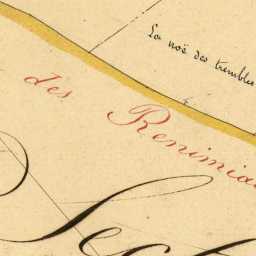 La noë des trembles
des Renimia
Sect